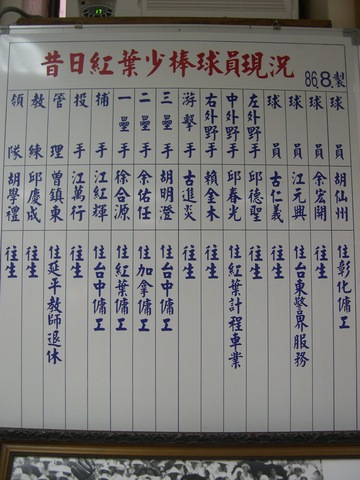 昔日紅葉少棒球員現況 86.8.製
領隊 胡學禮 往生
教練 邱慶成 往生
管理 曾鎮東 住延平教師退休
投手 江萬行 往生
捕手 江紅輝 住台中傭工
一壘手 徐合源 住紅葉傭工
二壘手 余佑任 住加拿傭工
三壘手 胡明澄 住台中傭工
游擊手 古進炎 往生
右外野手 賴金木 往生
中外野手 邱春光 住紅葉計程車業
左外野手 邱德聖 往生
球員 古仁義 往生
球員 江元興 住台東警界服務
球員 余宏開 往生
球員 胡仙州 住彰化傭工